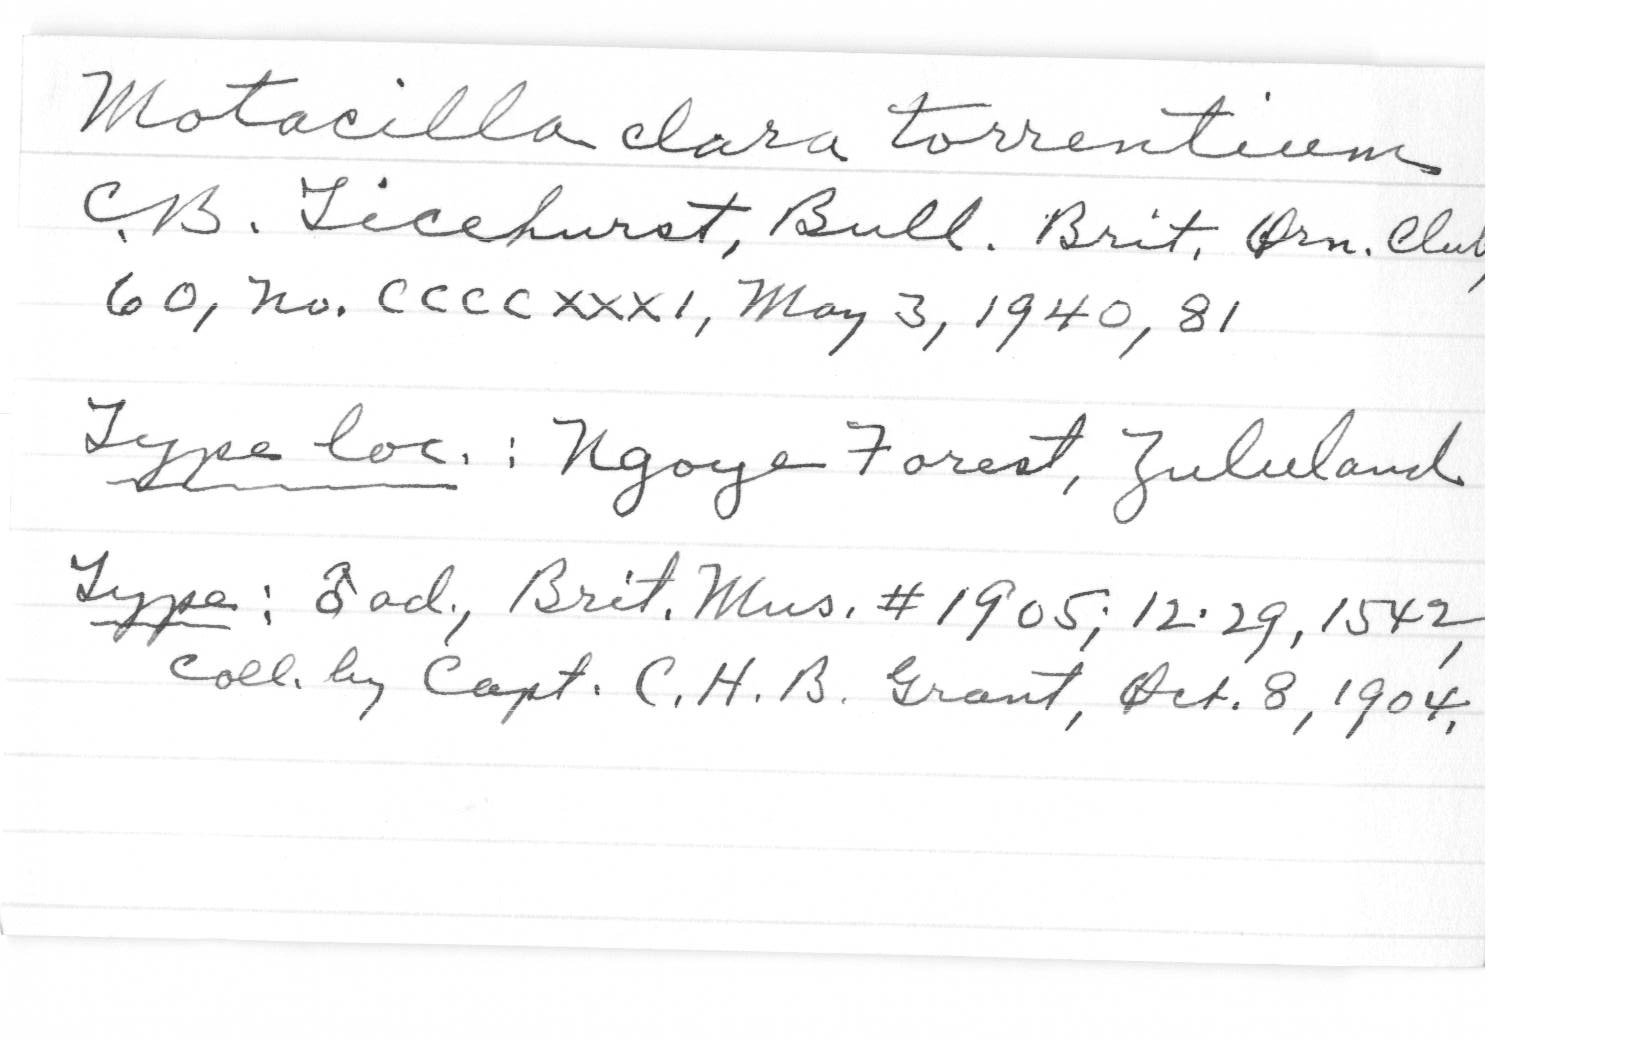 Motacilla clara torrentium
C.B. Ticehurst, Bull. Brit. Orn. Club,
60, no. CCCCXXXI, May 3, 1940, 81
Type loc. : Ngoye Forest, Zululand
Type : ♂ ad., Brit. Mus. # 1905; 12·29, 1542,
coll. by Capt. C.H.B. Grant, Oct. 8, 1904.